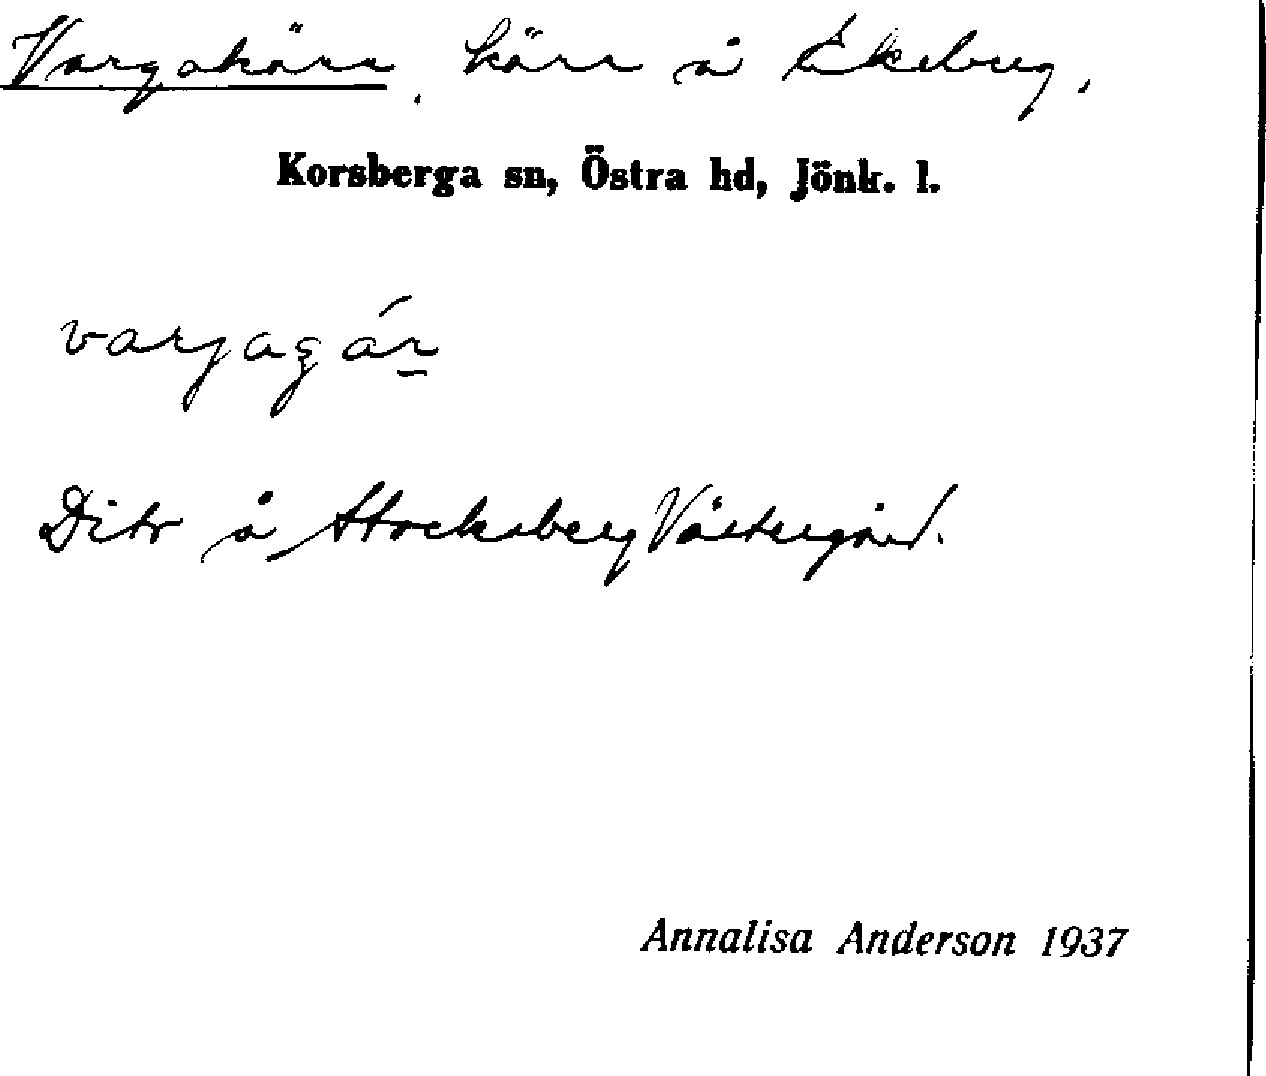 Vargakärr, kärr å Ekeberg.
Korsberga sn, Östra hd, Jönk. l.
Dito å Stocksberg Västergård.
Annalisa Anderson 1937